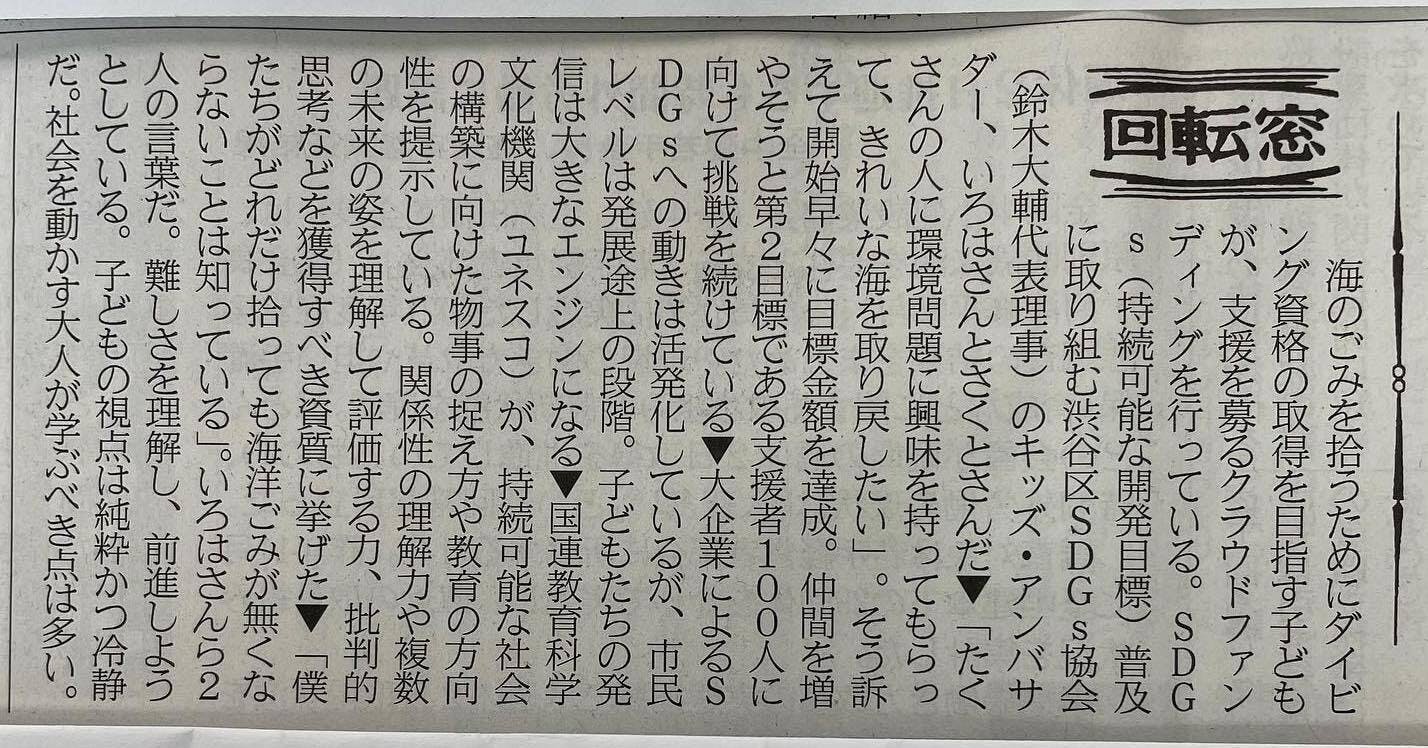 回転窓
海のごみを拾うためにダイビ
ング資格の取得を目指す子ども
が、支援を募るクラウドファン
ディングを行っている。SDG
s（持続可能な開発目標）普及
に取り組む渋谷区SDGs協会
（鈴木大輔代表理事）のキッズ・アンバサ
ダー、いろはさんとさくとさんだ▼「たく
さんの人に環境問題に興味を持ってもらっ
て、きれいな海を取り戻したい」。そう訴
えて開始早々に目標金額を達成。仲間を増
やそうと第2目標である支援者100人に
向けて挑戦を続けている▼大企業によるS
DGsへの動きは活発化しているが、市民
レベルは発展途上の段階。子どもたちの発
信は大きなエンジンになる▼国連教育科学
文化機関（ユネスコ）が、持続可能な社会
の構築に向けた物事の捉え方や教育の方向
性を提示している。関係性の理解力や複数
の未来の姿を理解して評価する力、批判的
思考などを獲得すべき資質に挙げた▼「僕
たちがどれだけ拾っても海洋ごみが無くな
らないことは知っている」。いろはさんら2
人の言葉だ。難しさを理解し、前進しよう
としている。子どもの視点は純粋かつ冷静
だ。社会を動かす大人が学ぶべき点は多い。